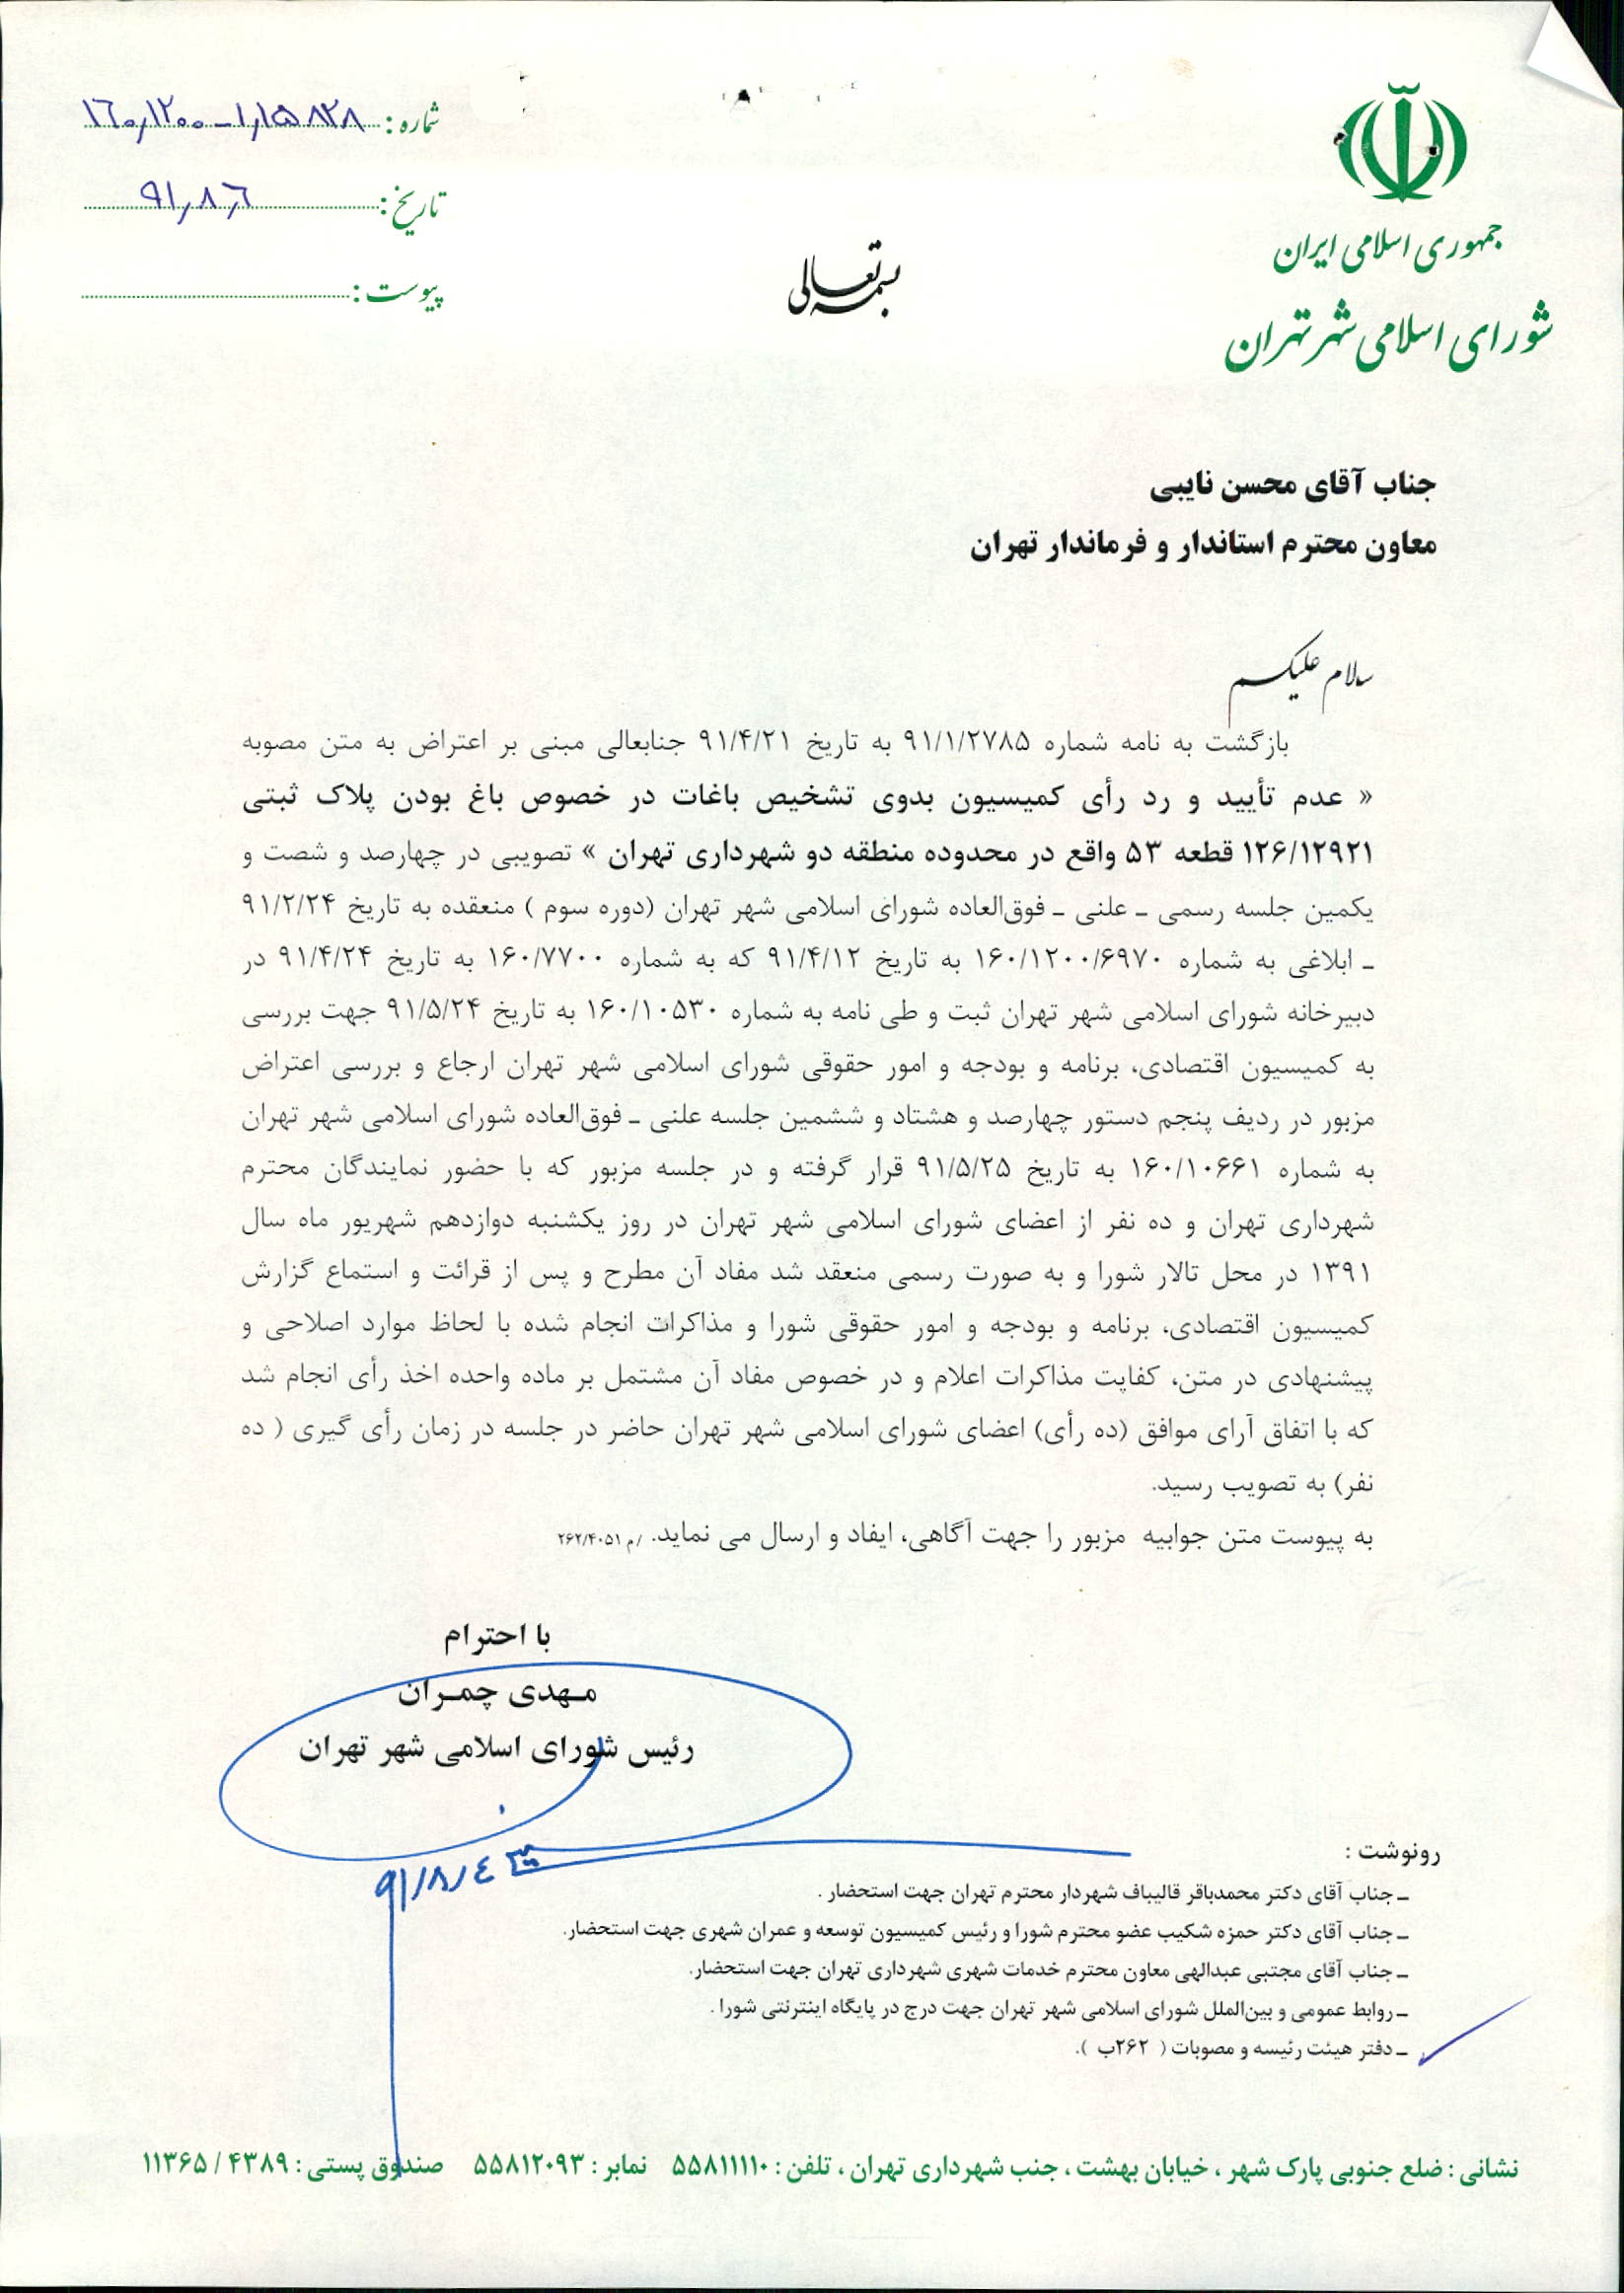 جمهوری اسلامی ایران
شورای اسلامی شهر تهران
بسمه تعالی
شماره: ۱۶۰/۱۲۰۰-۱/۱۵۸۲۸
تاریخ: ۹۱/۸/۶
پیوست:
جناب آقای محسن نایبی
معاون محترم استاندار و فرماندار تهران
سلام علیکم
بازگشت به نامه شماره ۹۱/۱/۲۷۸۵ به تاریخ ۹۱/۴/۲۱ جنابعالی مبنی بر اعتراض به متن مصوبه
« عدم تأیید و رد رأی کمیسیون بدوی تشخیص باغات در خصوص باغ بودن پلاک ثبتی
۱۲۶/۱۲۹۲۱ قطعه ۵۳ واقع در محدوده منطقه دو شهرداری تهران » تصویبی در چهارصد و شصت و
یکمین جلسه رسمی ـ علنی ـ فوق‌العاده شورای اسلامی شهر تهران (دوره سوم ) منعقده به تاریخ ۹۱/۲/۲۴
ـ ابلاغی به شماره ۱۶۰/۱۲۰۰/۶۹۷۰ به تاریخ ۹۱/۴/۱۲ که به شماره ۱۶۰/۷۷۰۰ به تاریخ ۹۱/۴/۲۴ در
دبیرخانه شورای اسلامی شهر تهران ثبت و طی نامه به شماره ۱۶۰/۱۰۵۳۰ به تاریخ ۹۱/۵/۲۴ جهت بررسی
به کمیسیون اقتصادی، برنامه و بودجه و امور حقوقی شورای اسلامی شهر تهران ارجاع و بررسی اعتراض
مزبور در ردیف پنجم دستور چهارصد و هشتاد و ششمین جلسه علنی ـ فوق‌العاده شورای اسلامی شهر تهران
به شماره ۱۶۰/۱۰۶۶۱ به تاریخ ۹۱/۵/۲۵ قرار گرفته و در جلسه مزبور که با حضور نمایندگان محترم
شهرداری تهران و ده نفر از اعضای شورای اسلامی شهر تهران در روز یکشنبه دوازدهم شهریور ماه سال
۱۳۹۱ در محل تالار شورا و به صورت رسمی منعقد شد مفاد آن مطرح و پس از قرائت و استماع گزارش
کمیسیون اقتصادی، برنامه و بودجه و امور حقوقی شورا و مذاکرات انجام شده با لحاظ موارد اصلاحی و
پیشنهادی در متن، کفایت مذاکرات اعلام و در خصوص مفاد آن مشتمل بر ماده واحده اخذ رأی انجام شد
که با اتفاق آرای موافق (ده رأی) اعضای شورای اسلامی شهر تهران حاضر در جلسه در زمان رأی گیری ( ده
نفر) به تصویب رسید.
به پیوست متن جوابیه مزبور را جهت آگاهی، ایفاد و ارسال می نماید. /م ۲۶۲/۴۰۵۱
با احترام
مـهدی چمـران
رئیس شورای اسلامی شهر تهران
۹۱/۸/۴
رونوشت :
ـ جناب آقای دکتر محمدباقر قالیباف شهردار محترم تهران جهت استحضار .
ـ جناب آقای دکتر حمزه شکیب عضو محترم شورا و رئیس کمیسیون توسعه و عمران شهری جهت استحضار.
ـ جناب آقای مجتبی عبدالهی معاون محترم خدمات شهری شهرداری تهران جهت استحضار.
ـ روابط عمومی و بین‌الملل شورای اسلامی شهر تهران جهت درج در پایگاه اینترنتی شورا .
ـ دفتر هیئت رئیسه و مصوبات ( ۲۶۲ب ).
نشانی : ضلع جنوبی پارک شهر ، خیابان بهشت ، جنب شهرداری تهران ، تلفن : ۵۵۸۱۱۱۱۰ نمابر : ۵۵۸۱۲۰۹۳ صندوق پستی : ۴۳۸۹ / ۱۱۳۶۵